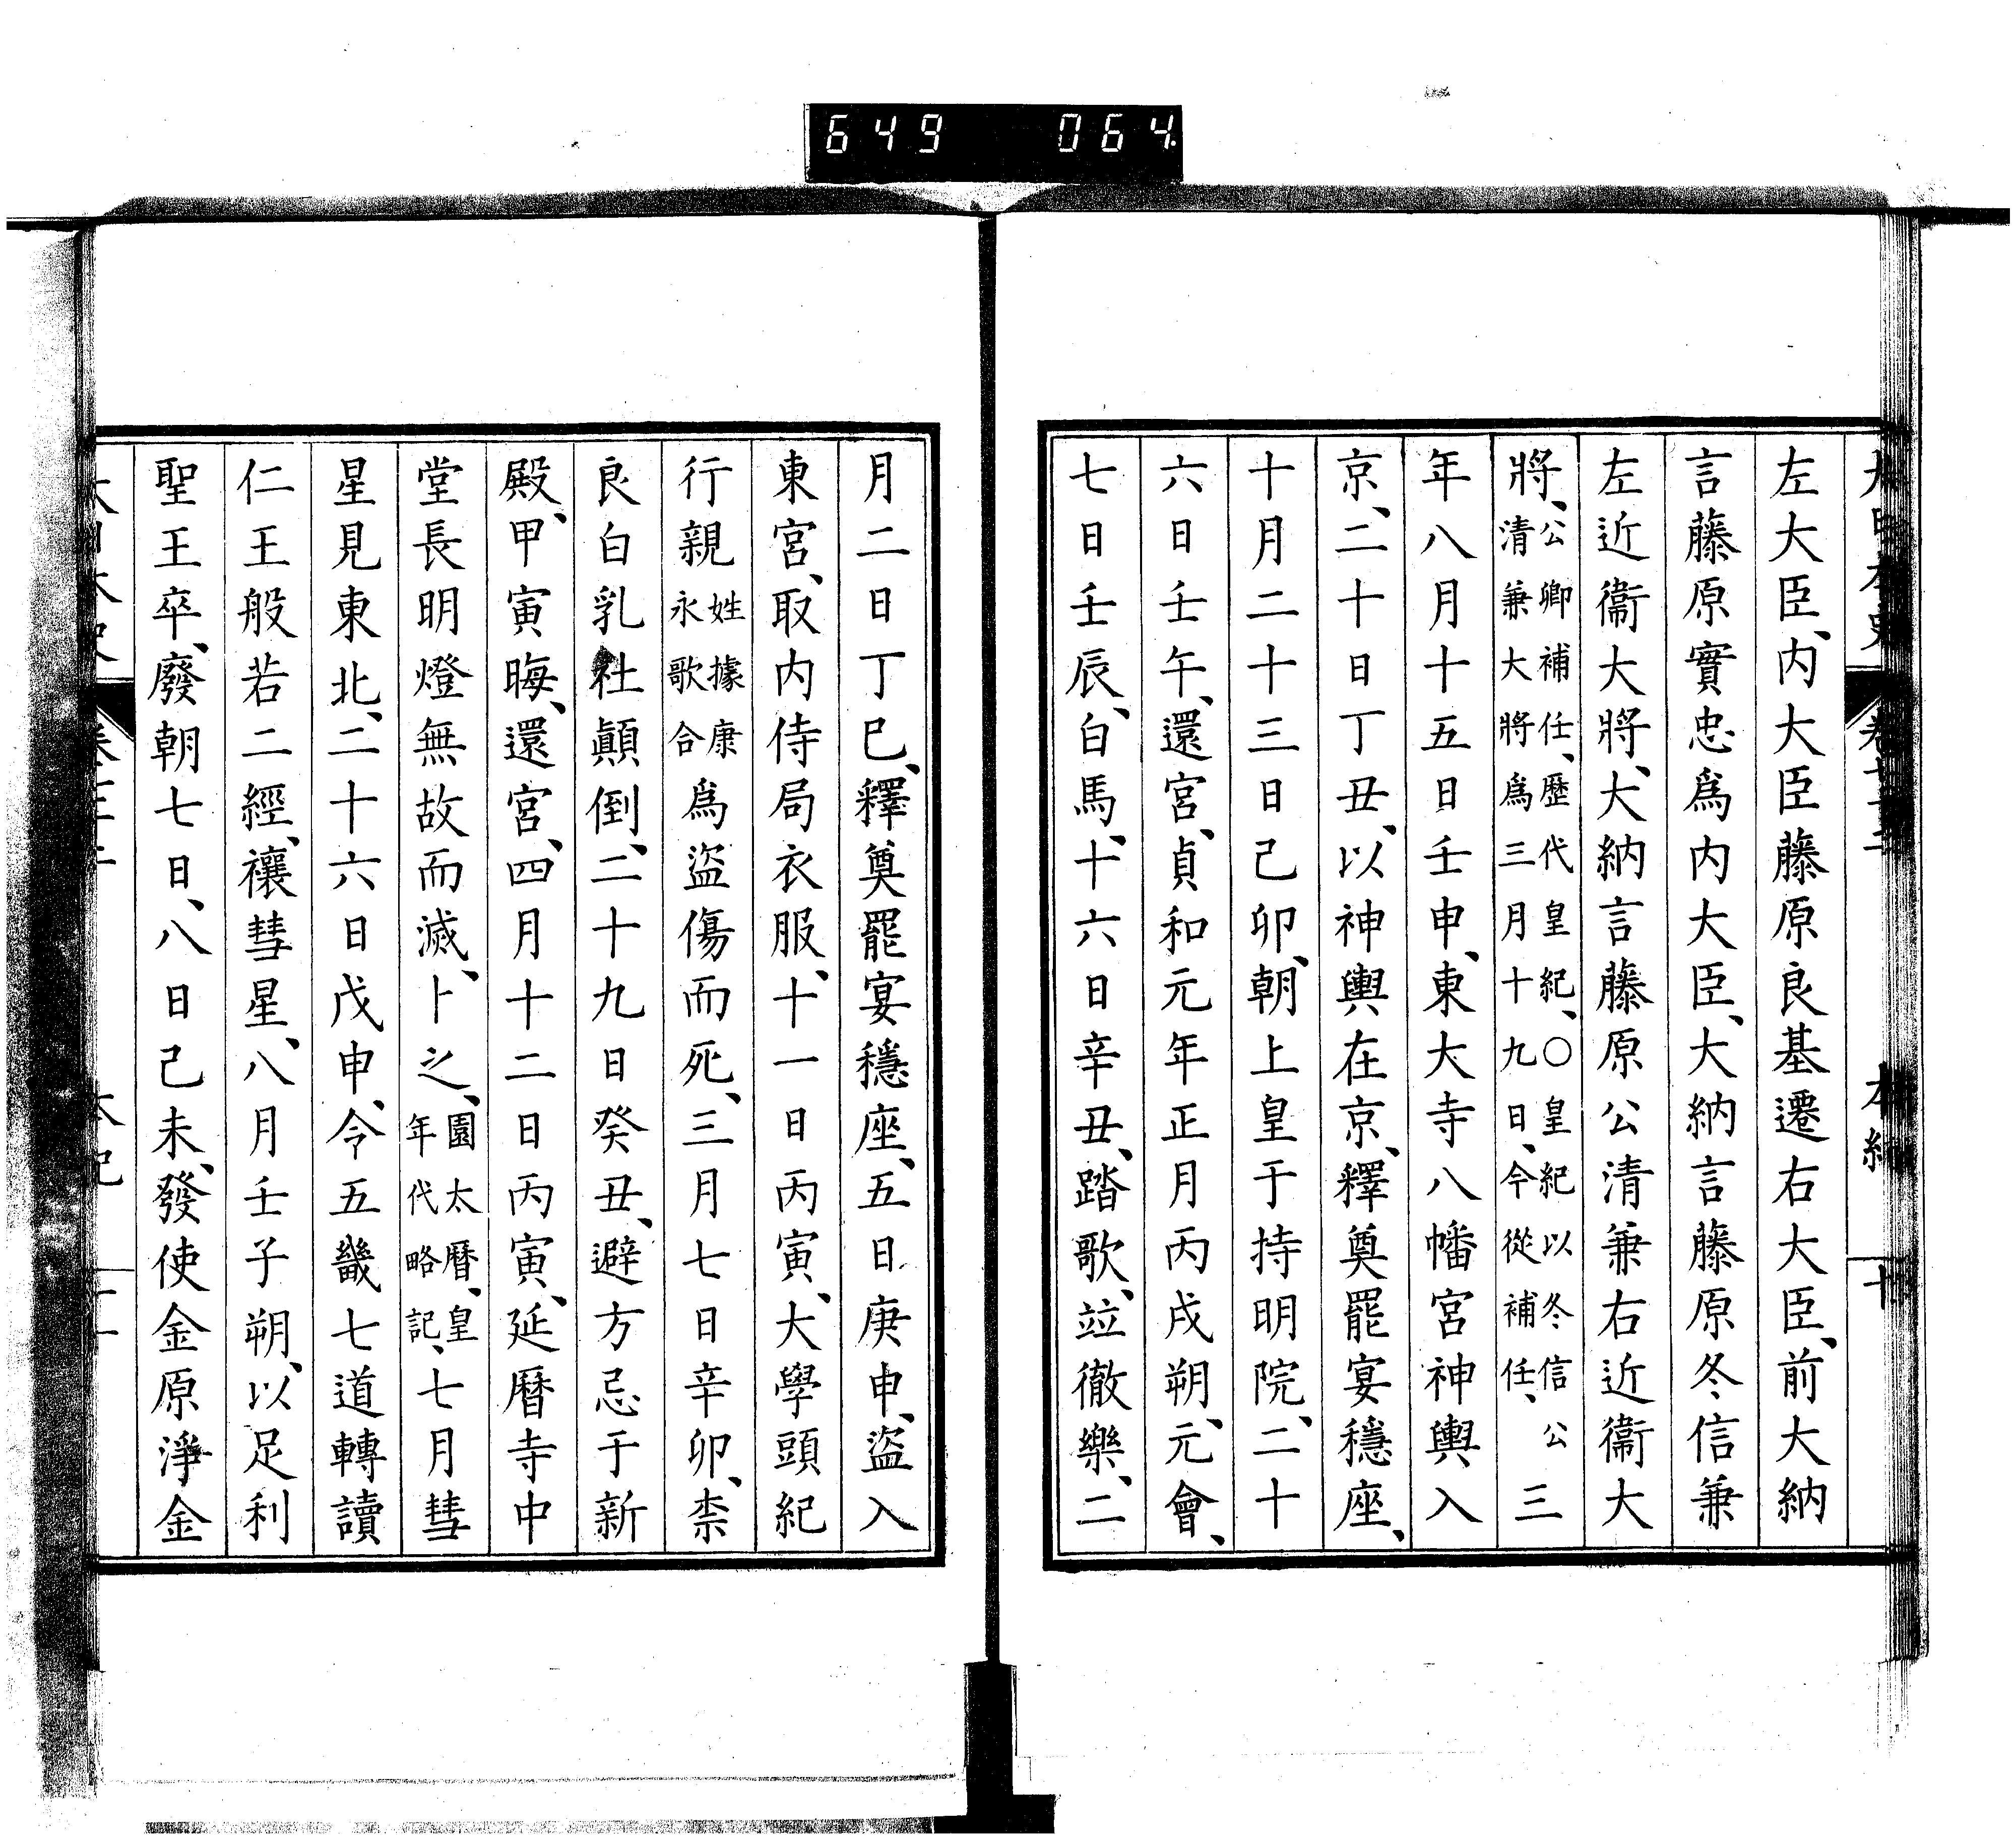 649 064
左大臣、内大臣藤原良基遷右大臣、前大納
言藤原實忠爲内大臣、大納言藤原冬信兼
左近衞大將、大納言藤原公清兼右近衞大
將、公卿補任、歷代皇紀、〇皇紀以冬信公
清兼大將爲三月十九日、今從補任、三
年八月十五日壬申、東大寺八幡宮神輿入
京、二十日丁丑、以神輿在京、釋奠罷宴穩座、
十月二十三日己卯、朝上皇于持明院、二十
六日壬午、還宮、貞和元年正月丙戌朔、元會、
七日壬辰、白馬、十六日辛丑、踏歌、竝徹樂、二
月二日丁巳、釋奠罷宴穩座、五日庚申、盜入
東宮、取内侍局衣服、十一日丙寅、大學頭紀
行親姓據康
永歌合爲盜傷而死、三月七日辛卯、柰
良白乳社顚倒、二十九日癸丑、避方忌于新
殿、甲寅晦、還宮、四月十二日丙寅、延曆寺中
堂長明燈無故而滅、卜之、園太曆、皇
年代略記、七月彗
星見東北、二十六日戊申、令五畿七道轉讀
仁王般若二經、禳彗星、八月壬子朔、以足利
聖王卒、廢朝七日、八日己未、發使金原淨金